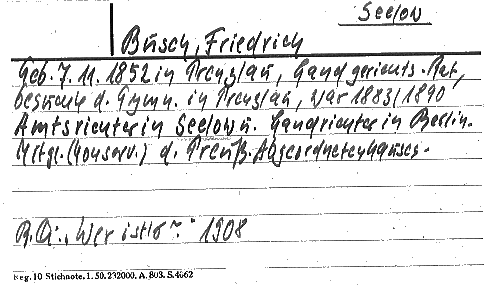 Seelow
Busch, Friedrich
Geb. 7. 11. 1852 in Prenzlau, Landgerichts-Rat,
besuchte d. Gymn. in Prenzlau, war 1883/1890
Amtsrichter in Seelow u. Landrichter in Berlin.
Mitgl. (konserv.) d. Preuß. Abgeordnetenhauses.
B.Qu.: "Wer ist's?" 1908
Reg. 10 Stichnote. 1. 50. 232000. A. 808. S. 4662